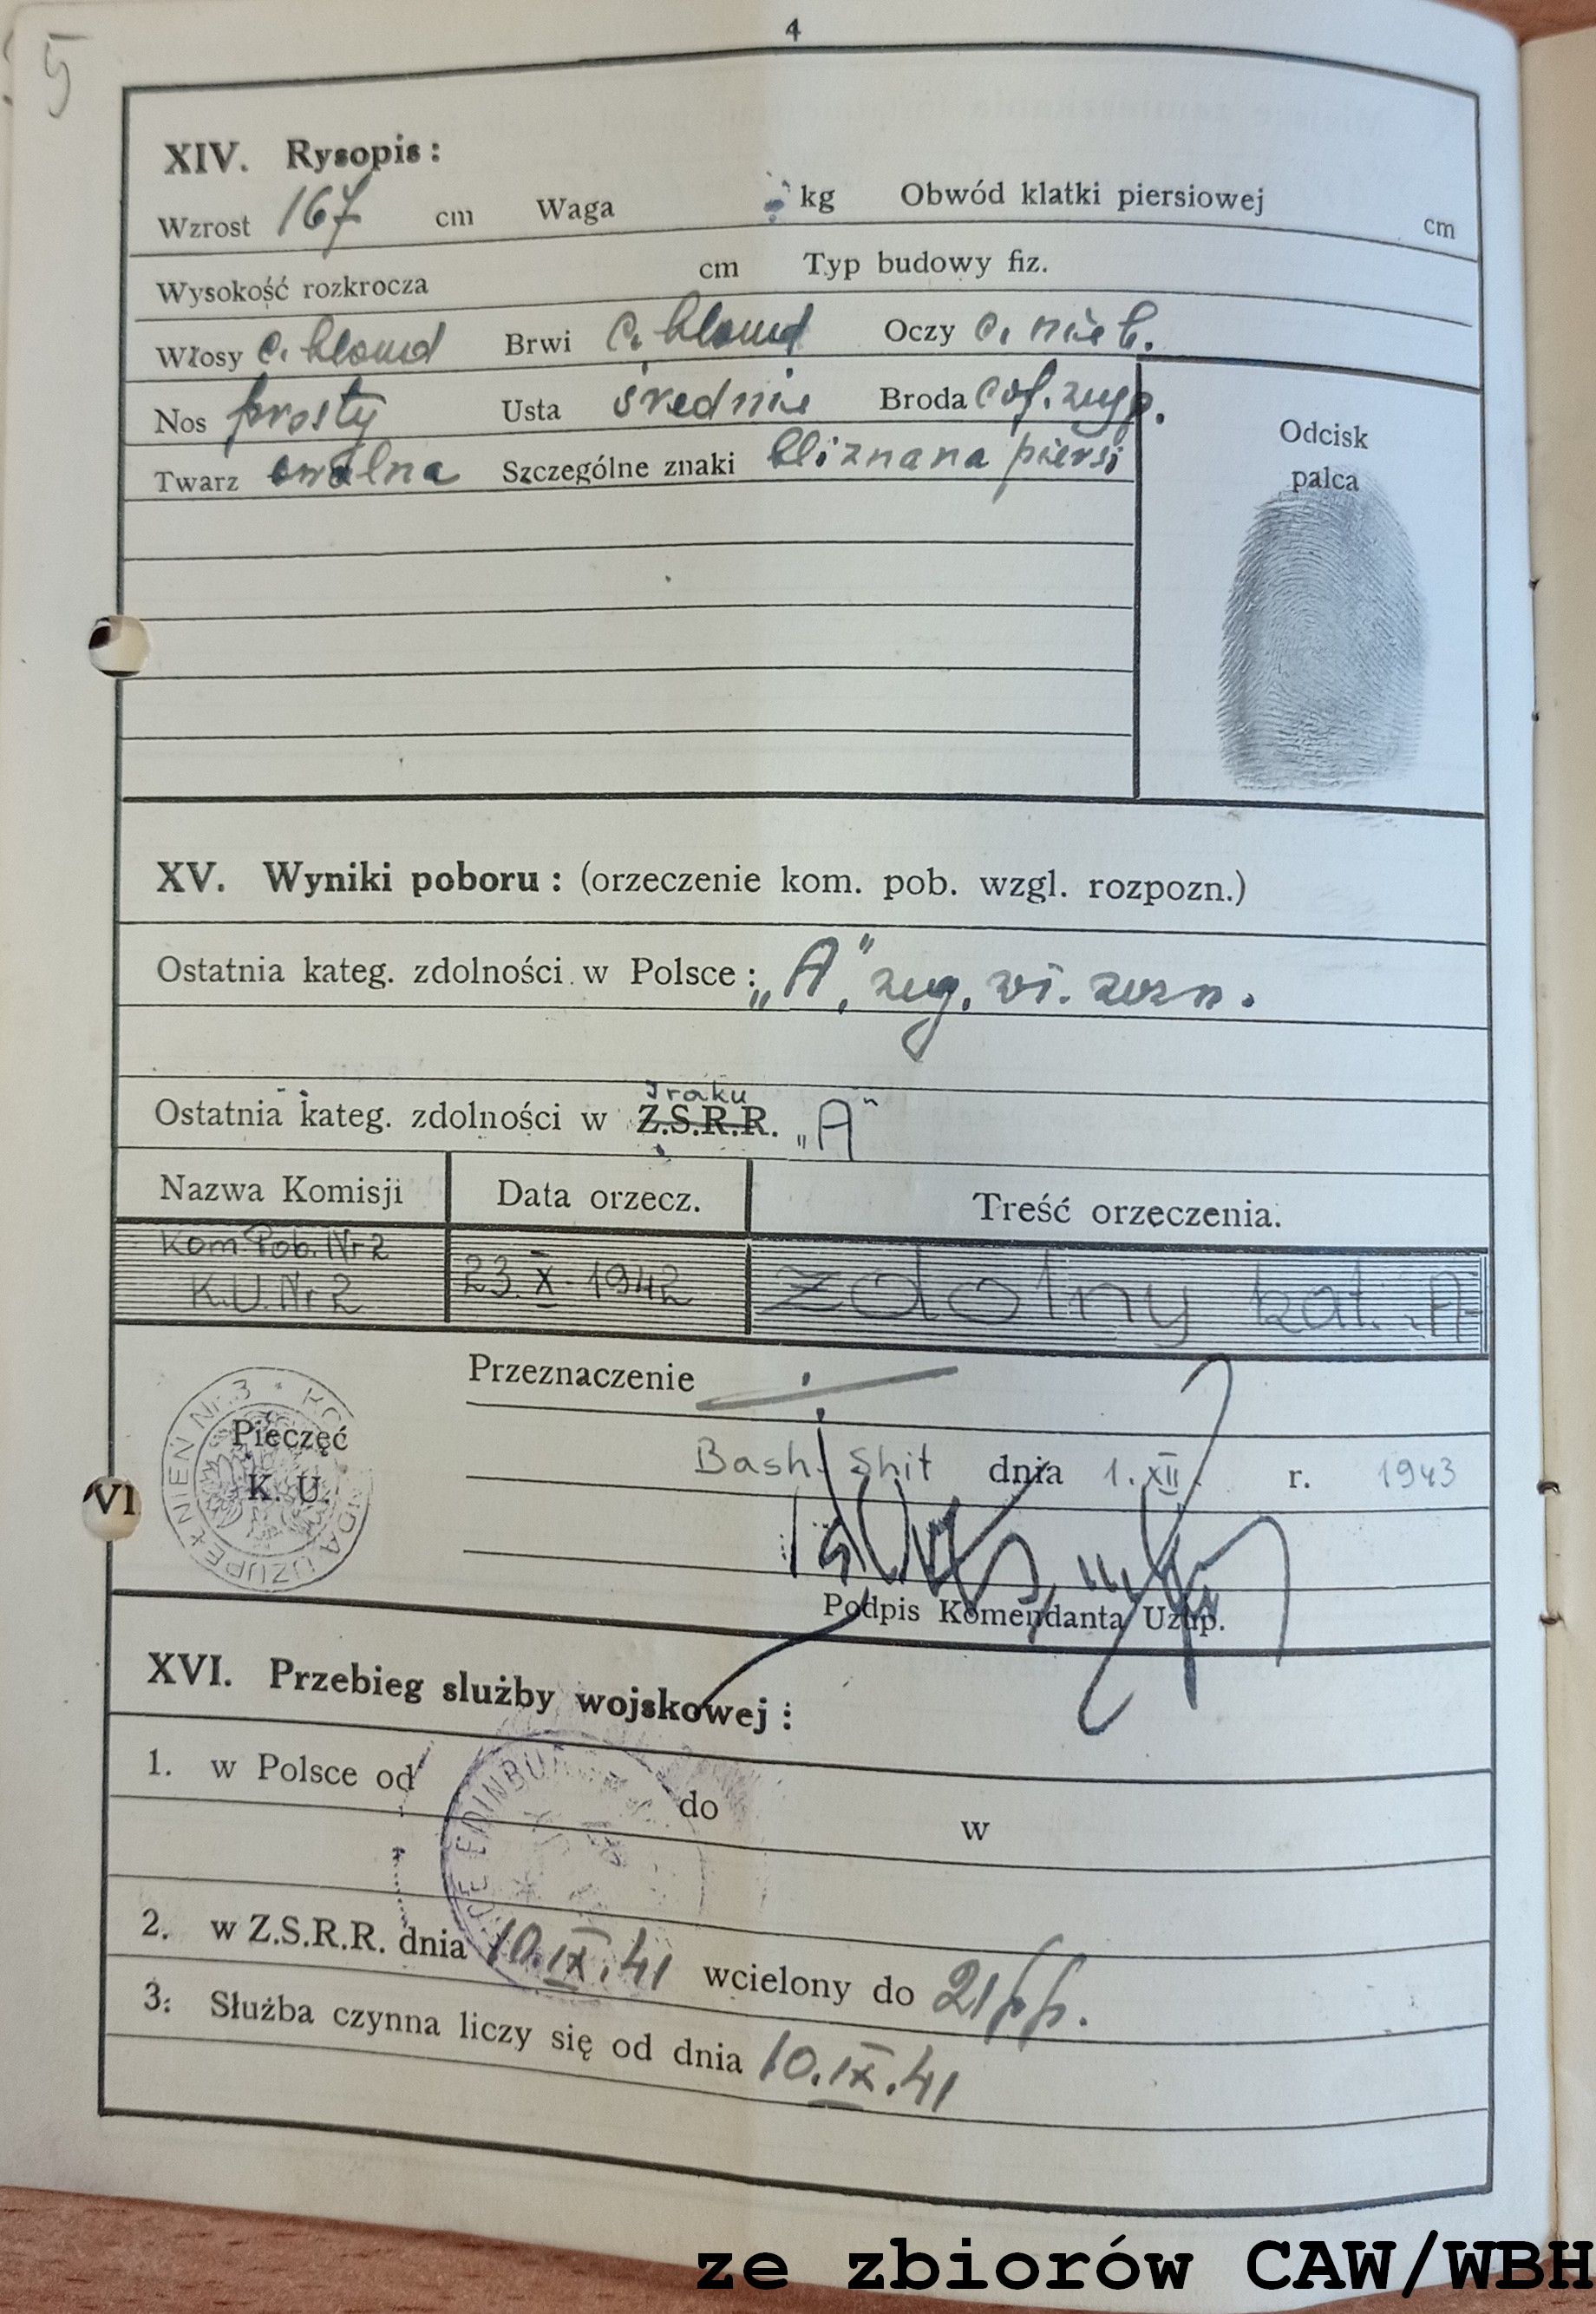 5
4
XIV. Rysopis:
Wzrost 167 cm Waga kg Obwód klatki piersiowej cm
Wysokość rozkrocza cm Typ budowy fiz.
Włosy c. blond Brwi c. blond Oczy c. nieb.
Nos prosty Usta średnie Broda
Twarz owalna Szczególne znaki blizna na piersi
Odcisk
palca
XV. Wyniki poboru: (orzeczenie kom. pob. wzgl. rozpozn.)
Ostatnia kateg. zdolności w Polsce: „A”
Iraku
Ostatnia kateg. zdolności w Z.S.R.R. „A”
Nazwa Komisji Data orzecz. Treść orzeczenia.
Kom. Pob. Nr 2
K.U. Nr 2 23.X.1942 zdolny kat. A
Przeznaczenie
KOMENDA UZUPEŁNIEŃ Nr. 3
Pieczęć
K. U.
Bash/Shit dnia 1.XII. r. 1943
VI
Podpis Komendanta Uzup.
XVI. Przebieg służby wojskowej:
1. w Polsce od do w
2. w Z.S.R.R. dnia 10.IX.41 wcielony do 21 pp.
3. Służba czynna liczy się od dnia 10.IX.41
ze zbiorów CAW/WBH